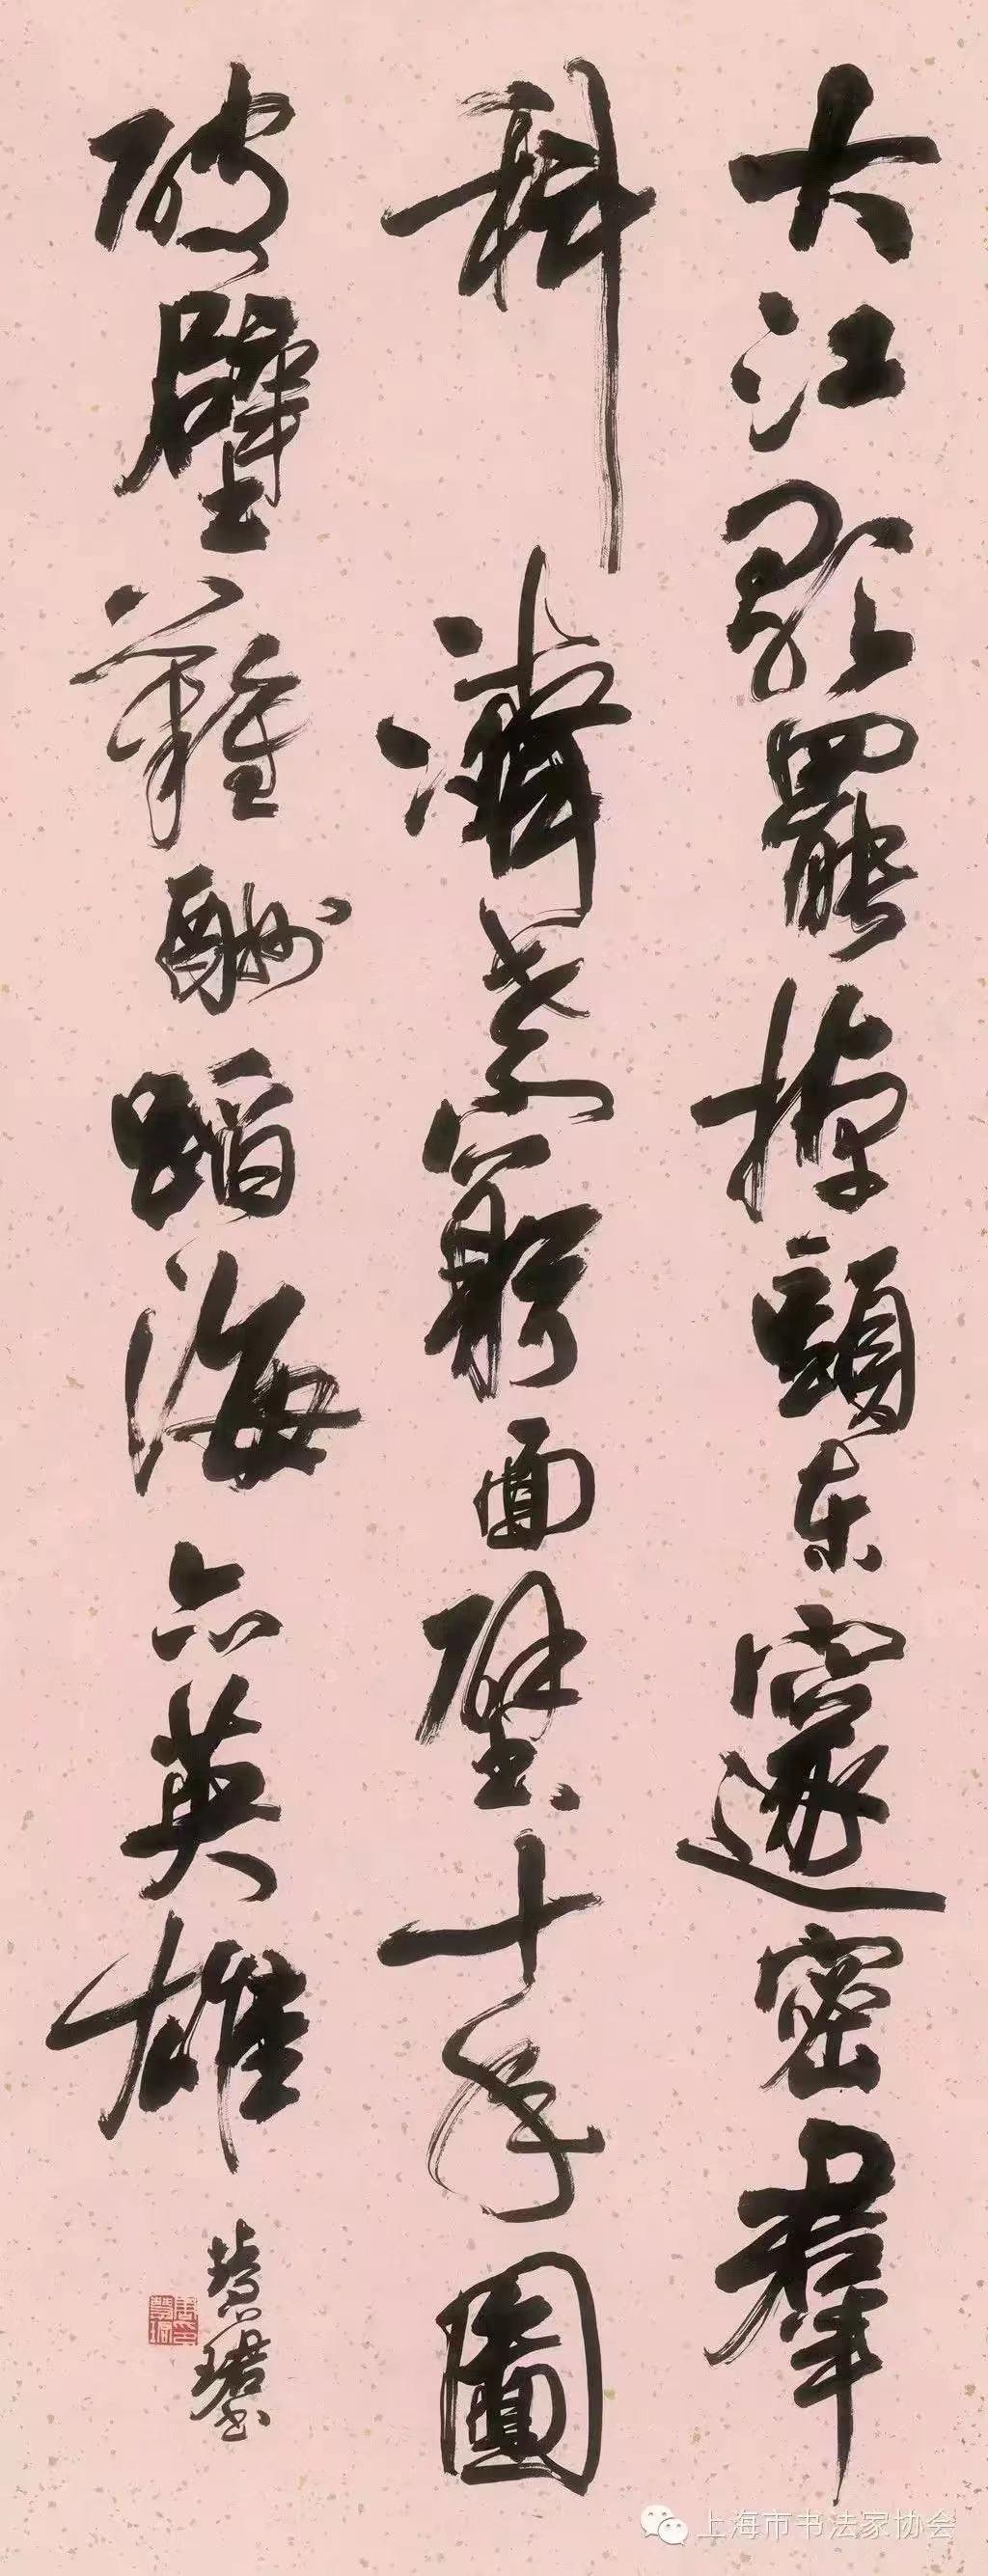 大江歌罷掉頭東邃密羣
科濟世窮面壁十年圖
破壁難酬蹈海亦英雄
上海市书法家协会